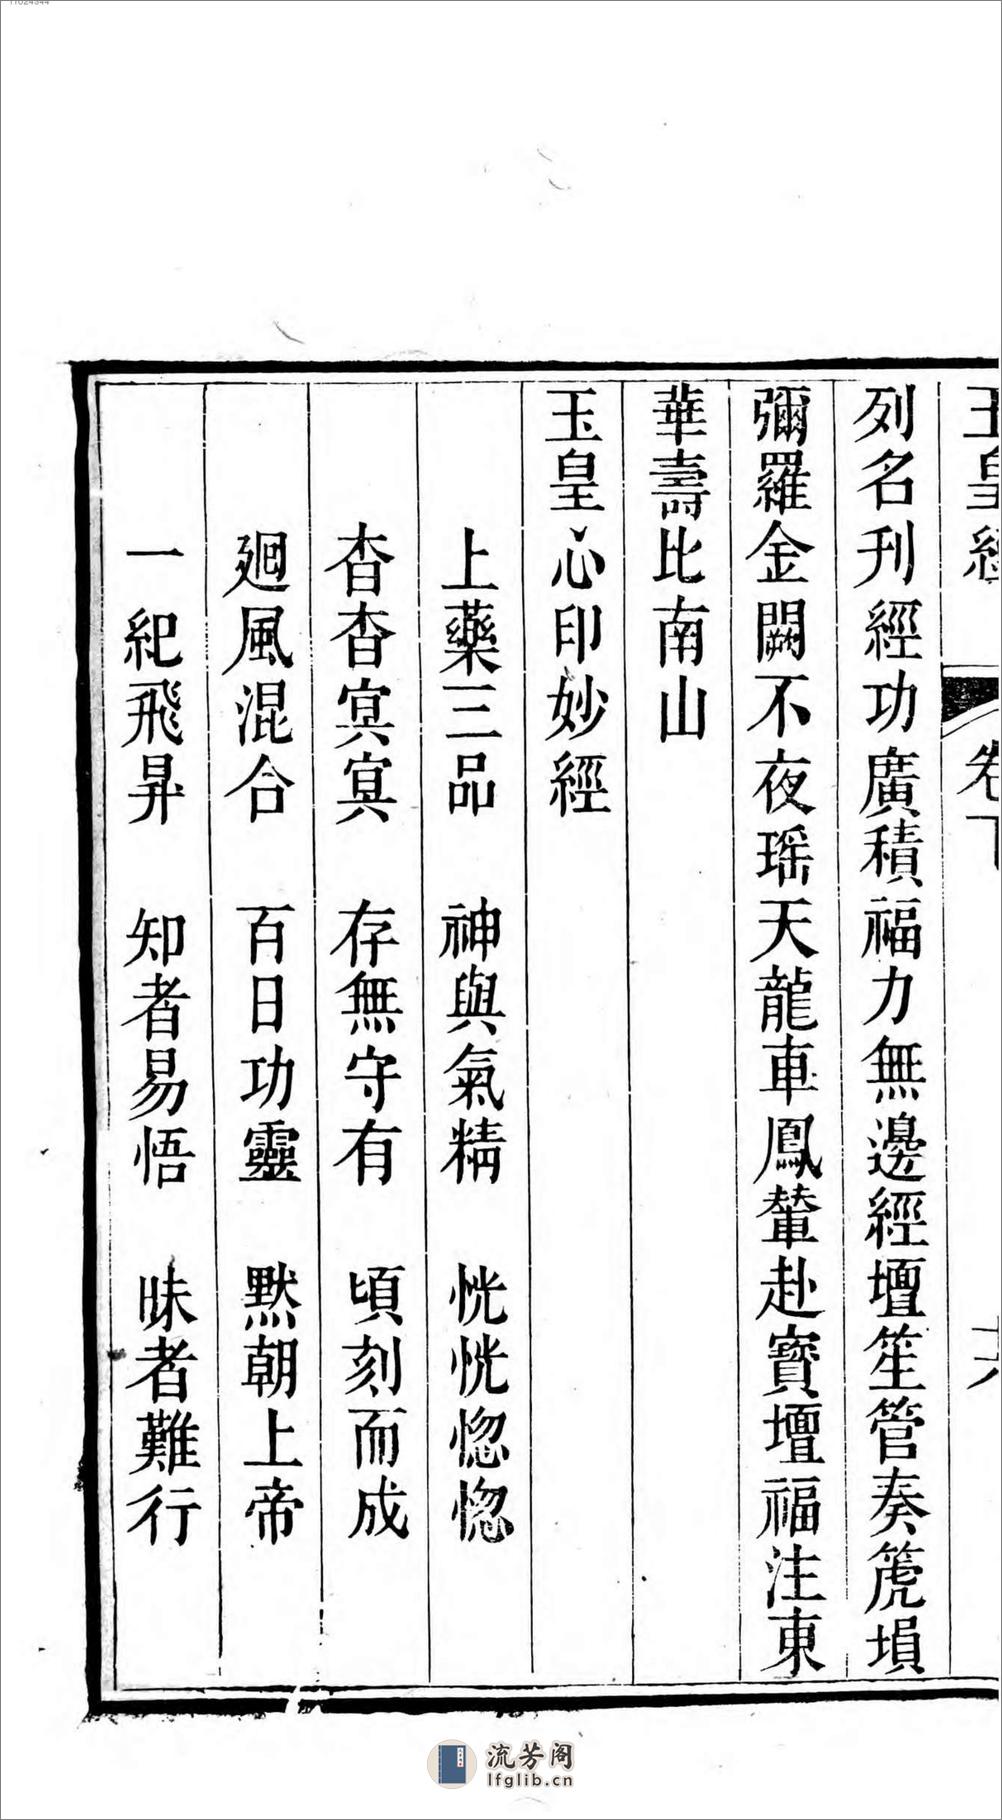 11024344
玉皇經 卷下
列名刊經功廣積福力無邊經壇笙管奏篪塤
彌羅金闕不夜瑶天龍車鳳輦赴寶壇福注東
華壽比南山
玉皇心印妙經
上藥三品 神與氣精 恍恍惚惚
杳杳冥冥 存無守有 頃刻而成
廻風混合 百日功靈 默朝上帝
一紀飛昇 知者易悟 昧者難行
流芳阁
lfglib.cn